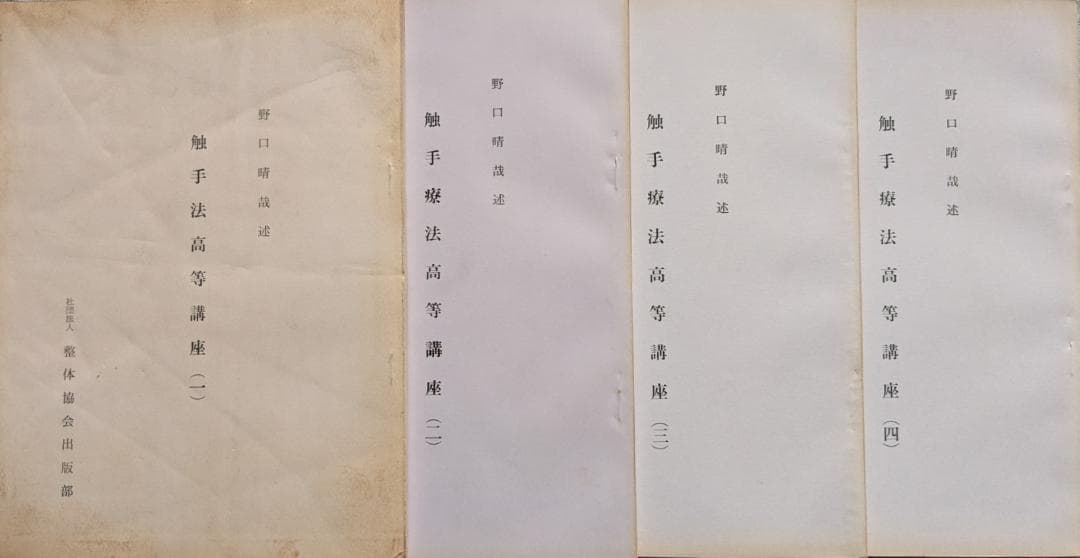 野口晴哉述
触手法高等講座（一）
社団法人
整体協会出版部
野口晴哉述
触手療法高等講座（二）
野口晴哉述
触手療法高等講座（三）
野口晴哉述
触手療法高等講座（四）